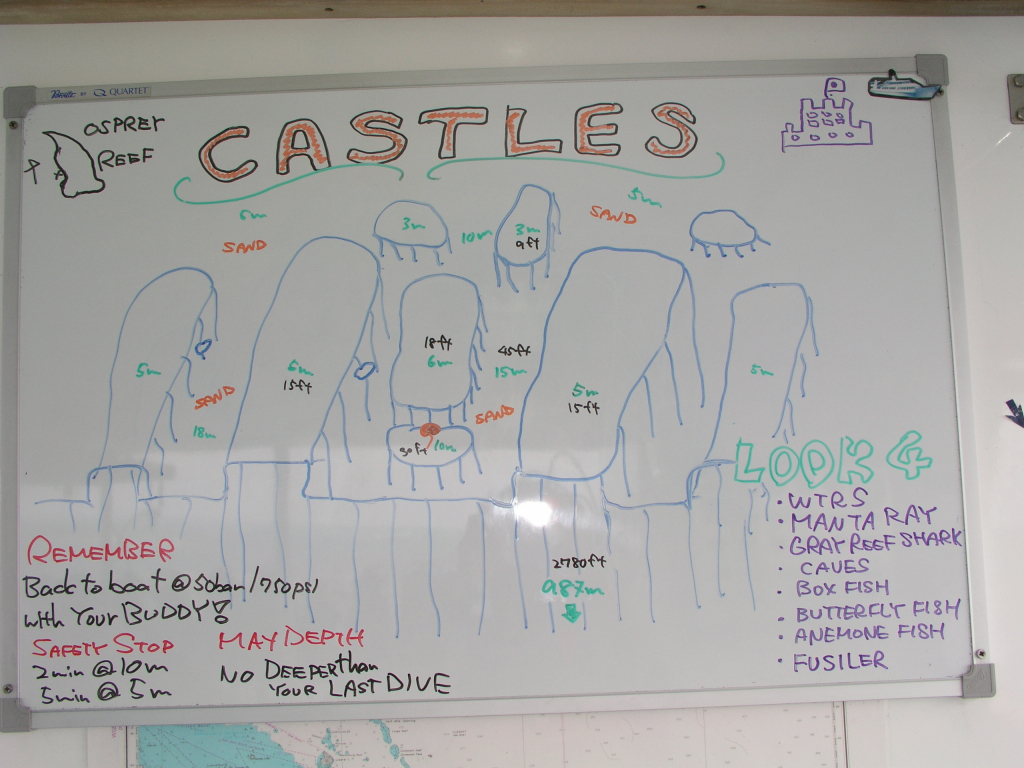 QUARTET
OSPREY
REEF
CASTLES
5m
SAND
6m
SAND
3m
10m
3m
9ft
5m
SAND
18m
6m
15ft
18ft
6m
45ft
15m
SAND
30ft
10m
5m
15ft
5m
2780ft
987m
LOOK 4
• WTRS
• MANTA RAY
• GRAY REEF SHARK
• CAVES
• BOX FISH
• BUTTERFLY FISH
• ANEMONE FISH
• FUSILER
REMEMBER
Back to boat @ 50bar/750psi
with YOUR BUDDY!
SAFETY STOP
2min @ 10m
5min @ 5m
MAY DEPTH
NO DEEPER than
YOUR LAST DIVE